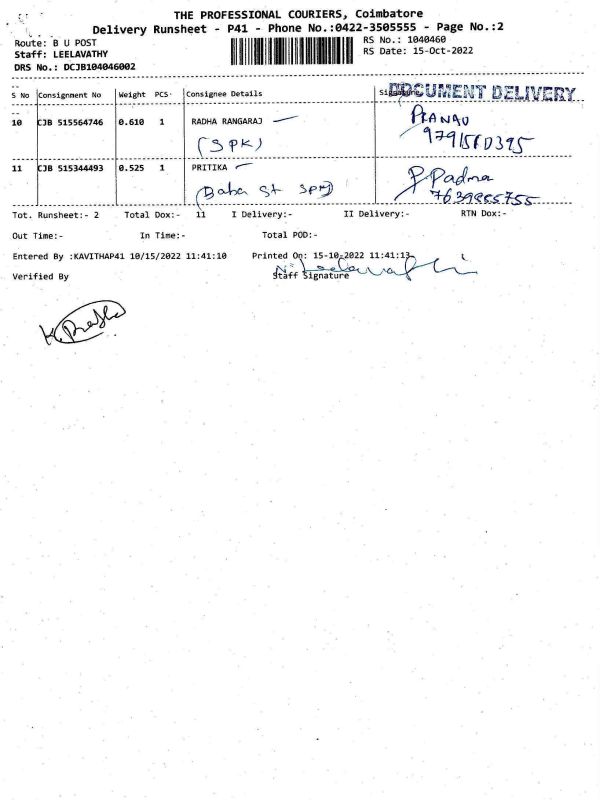 THE PROFESSIONAL COURIERS, Coimbatore
Delivery Runsheet - P41 - Phone No.:0422-3505555 - Page No.:2
Route: B U POST
RS No.: 1040460
Staff: LEELAVATHY
RS Date: 15-Oct-2022
DRS No.: DCJB104046002
S No Consignment No Weight PCS Consignee Details Signature DOCUMENT DELIVERY
10 CJB 515564746 0.610 1 RADHA RANGARAJ PRANAV
(SPK)
11 CJB 515344493 0.525 1 PRITIKA P. Padma
(Baba St SPM) 7639855755
Tot. Runsheet:- 2 Total Dox:- 11 I Delivery:- II Delivery:- RTN Dox:-
Out Time:- In Time:- Total POD:-
Entered By :KAVITHAP41 10/15/2022 11:41:10 Printed On: 15-10-2022 11:41:13
Verified By Staff Signature